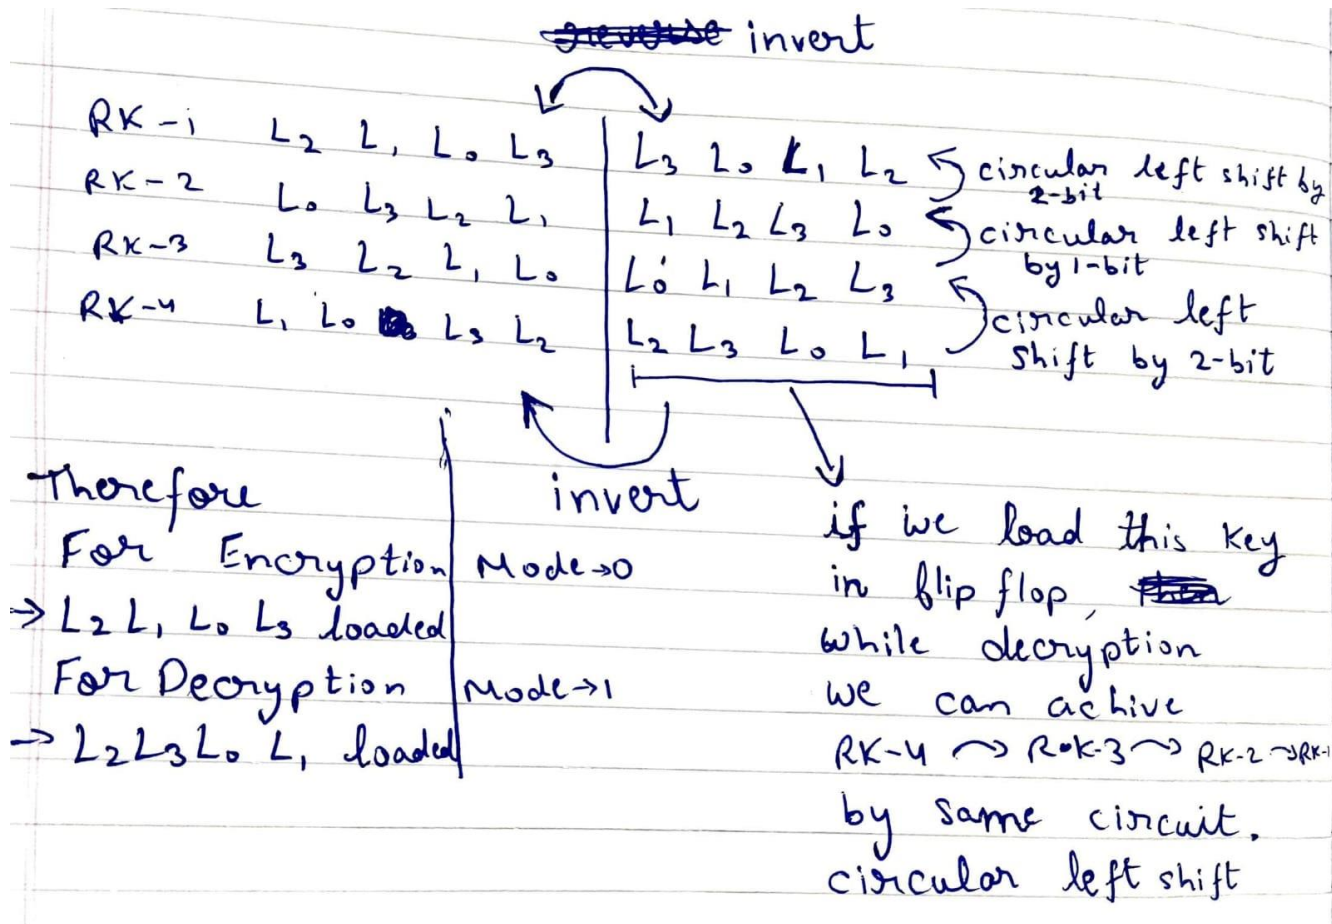 invert
RK-1 L2 L1 L0 L3 | L3 L0 L1 L2 circular left shift by 2-bit
RK-2 L0 L3 L2 L1 | L1 L2 L3 L0 circular left shift by 1-bit
RK-3 L3 L2 L1 L0 | L0 L1 L2 L3 circular left shift by 2-bit
RK-4 L1 L0 L3 L2 | L2 L3 L0 L1
invert
Therefore
For Encryption | Mode→0
→ L2 L1 L0 L3 loaded
For Decryption | Mode→1
→ L2 L3 L0 L1 loaded
if we load this key
in flip flop,
while decryption
we can achive
RK-4 → RK-3 → RK-2 → RK-1
by same circuit.
circular left shift